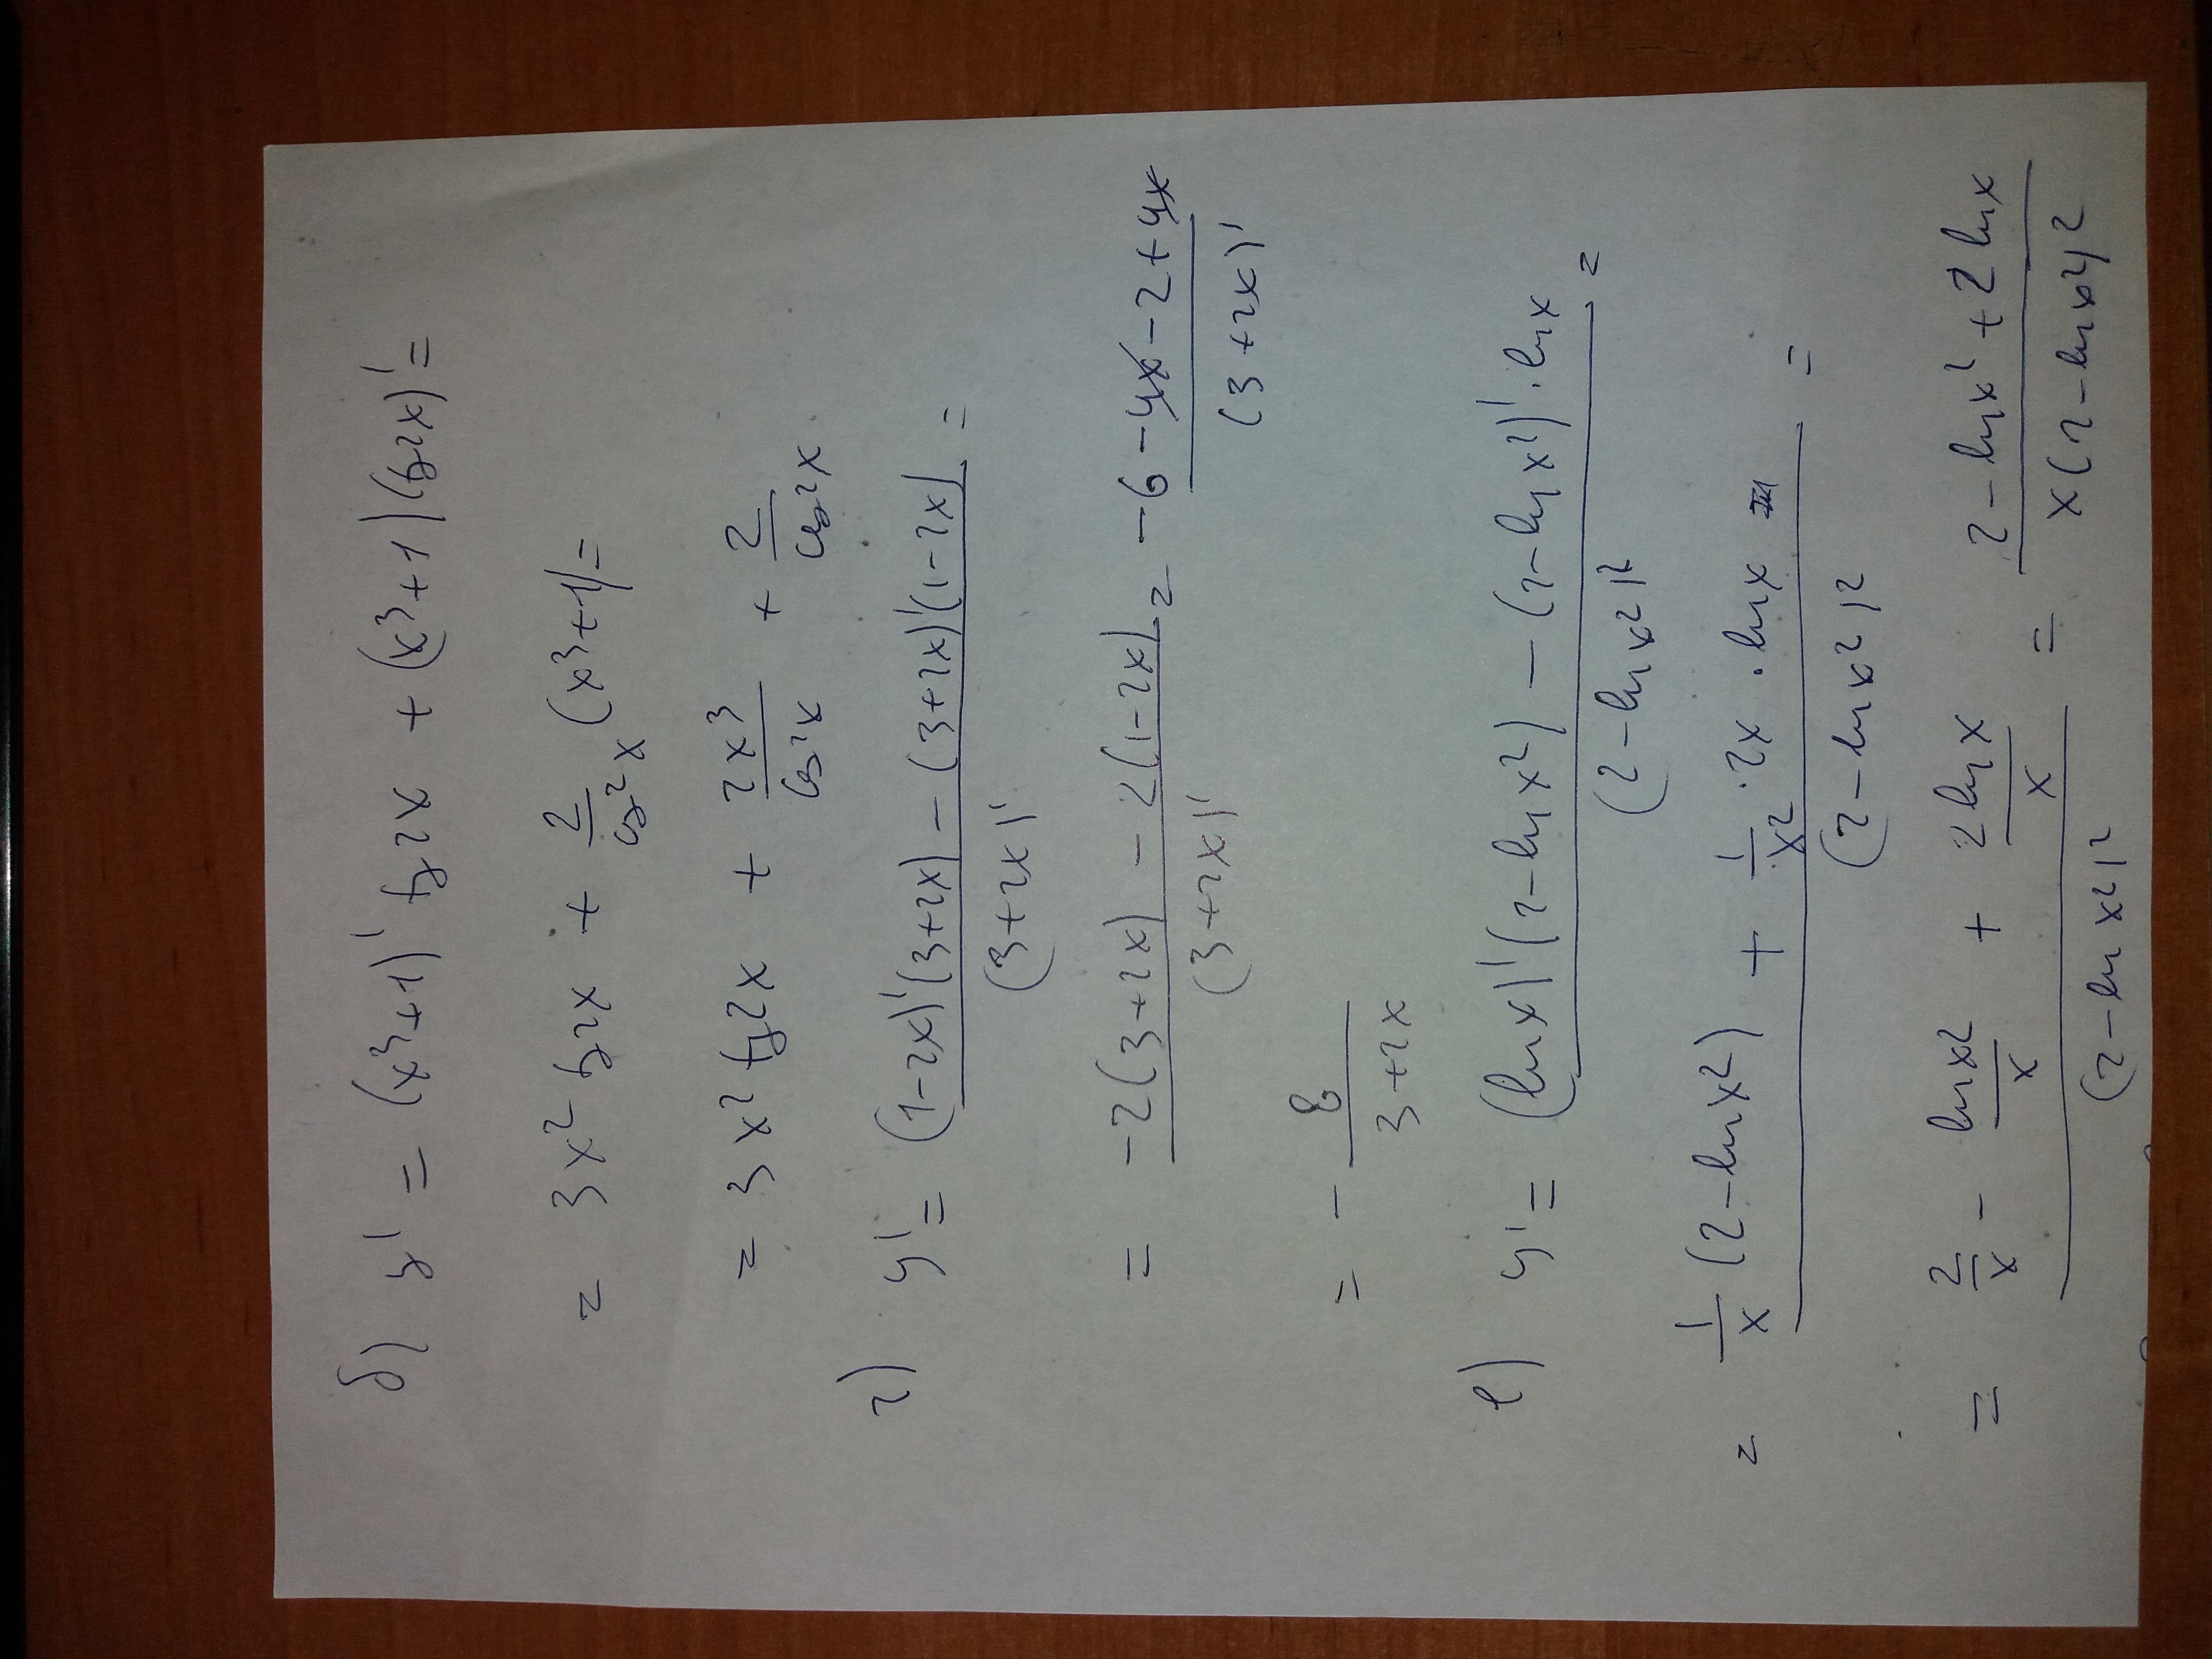 б) y' = (x³+1)' tg2x + (x³+1)(tg2x)' =
= 3x² tg2x + 2/cos²x (x³+1) =
= 3x² tg2x + 2x³/cos²x + 2/cos²x
г) y' = ((1-2x)'(3+2x) - (3+2x)'(1-2x))/(3+2x)' =
= (-2(3+2x) - 2(1-2x))/(3+2x)' = (-6-4x-2+4x)/(3+2x)'
= - 8/(3+2x)
е) y' = ((lnx)'(2-lnx²) - (2-lnx²)'·lnx)/(2-lnx²)² =
= (1/x (2-lnx²) + 1/x² · 2x · lnx)/(2-lnx²)² =
= (2/x - lnx²/x + 2lnx/x)/(2-lnx²)² = (2-lnx²+2lnx)/(x(2-lnx²)²)